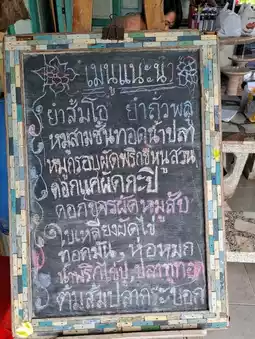 เมนูแนะนำ
ยำส้มโอ ยำถั่วพลู
หมูสามชั้นทอดน้ำปลา
หมูกรอบผัดพริกขี้หนูสวน
ดอกแคผัดกะปิ
ดอกขจรผัดหมูสับ
ใบเหลียงผัดไข่
ทอดมัน, ห่อหมก
น้ำพริกไข่ปู, ปลาทูทอด
ต้มส้มปลากระบอก